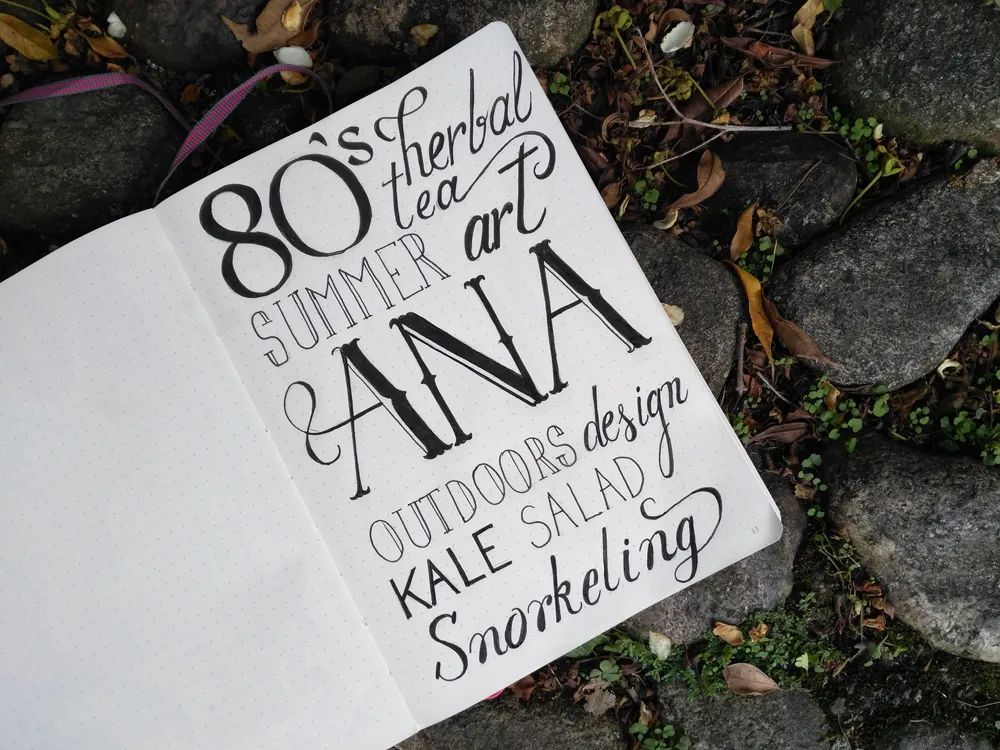 80's herbal
tea
SUMMER art
ANA
OUTDOORS design
KALE SALAD
Snorkeling